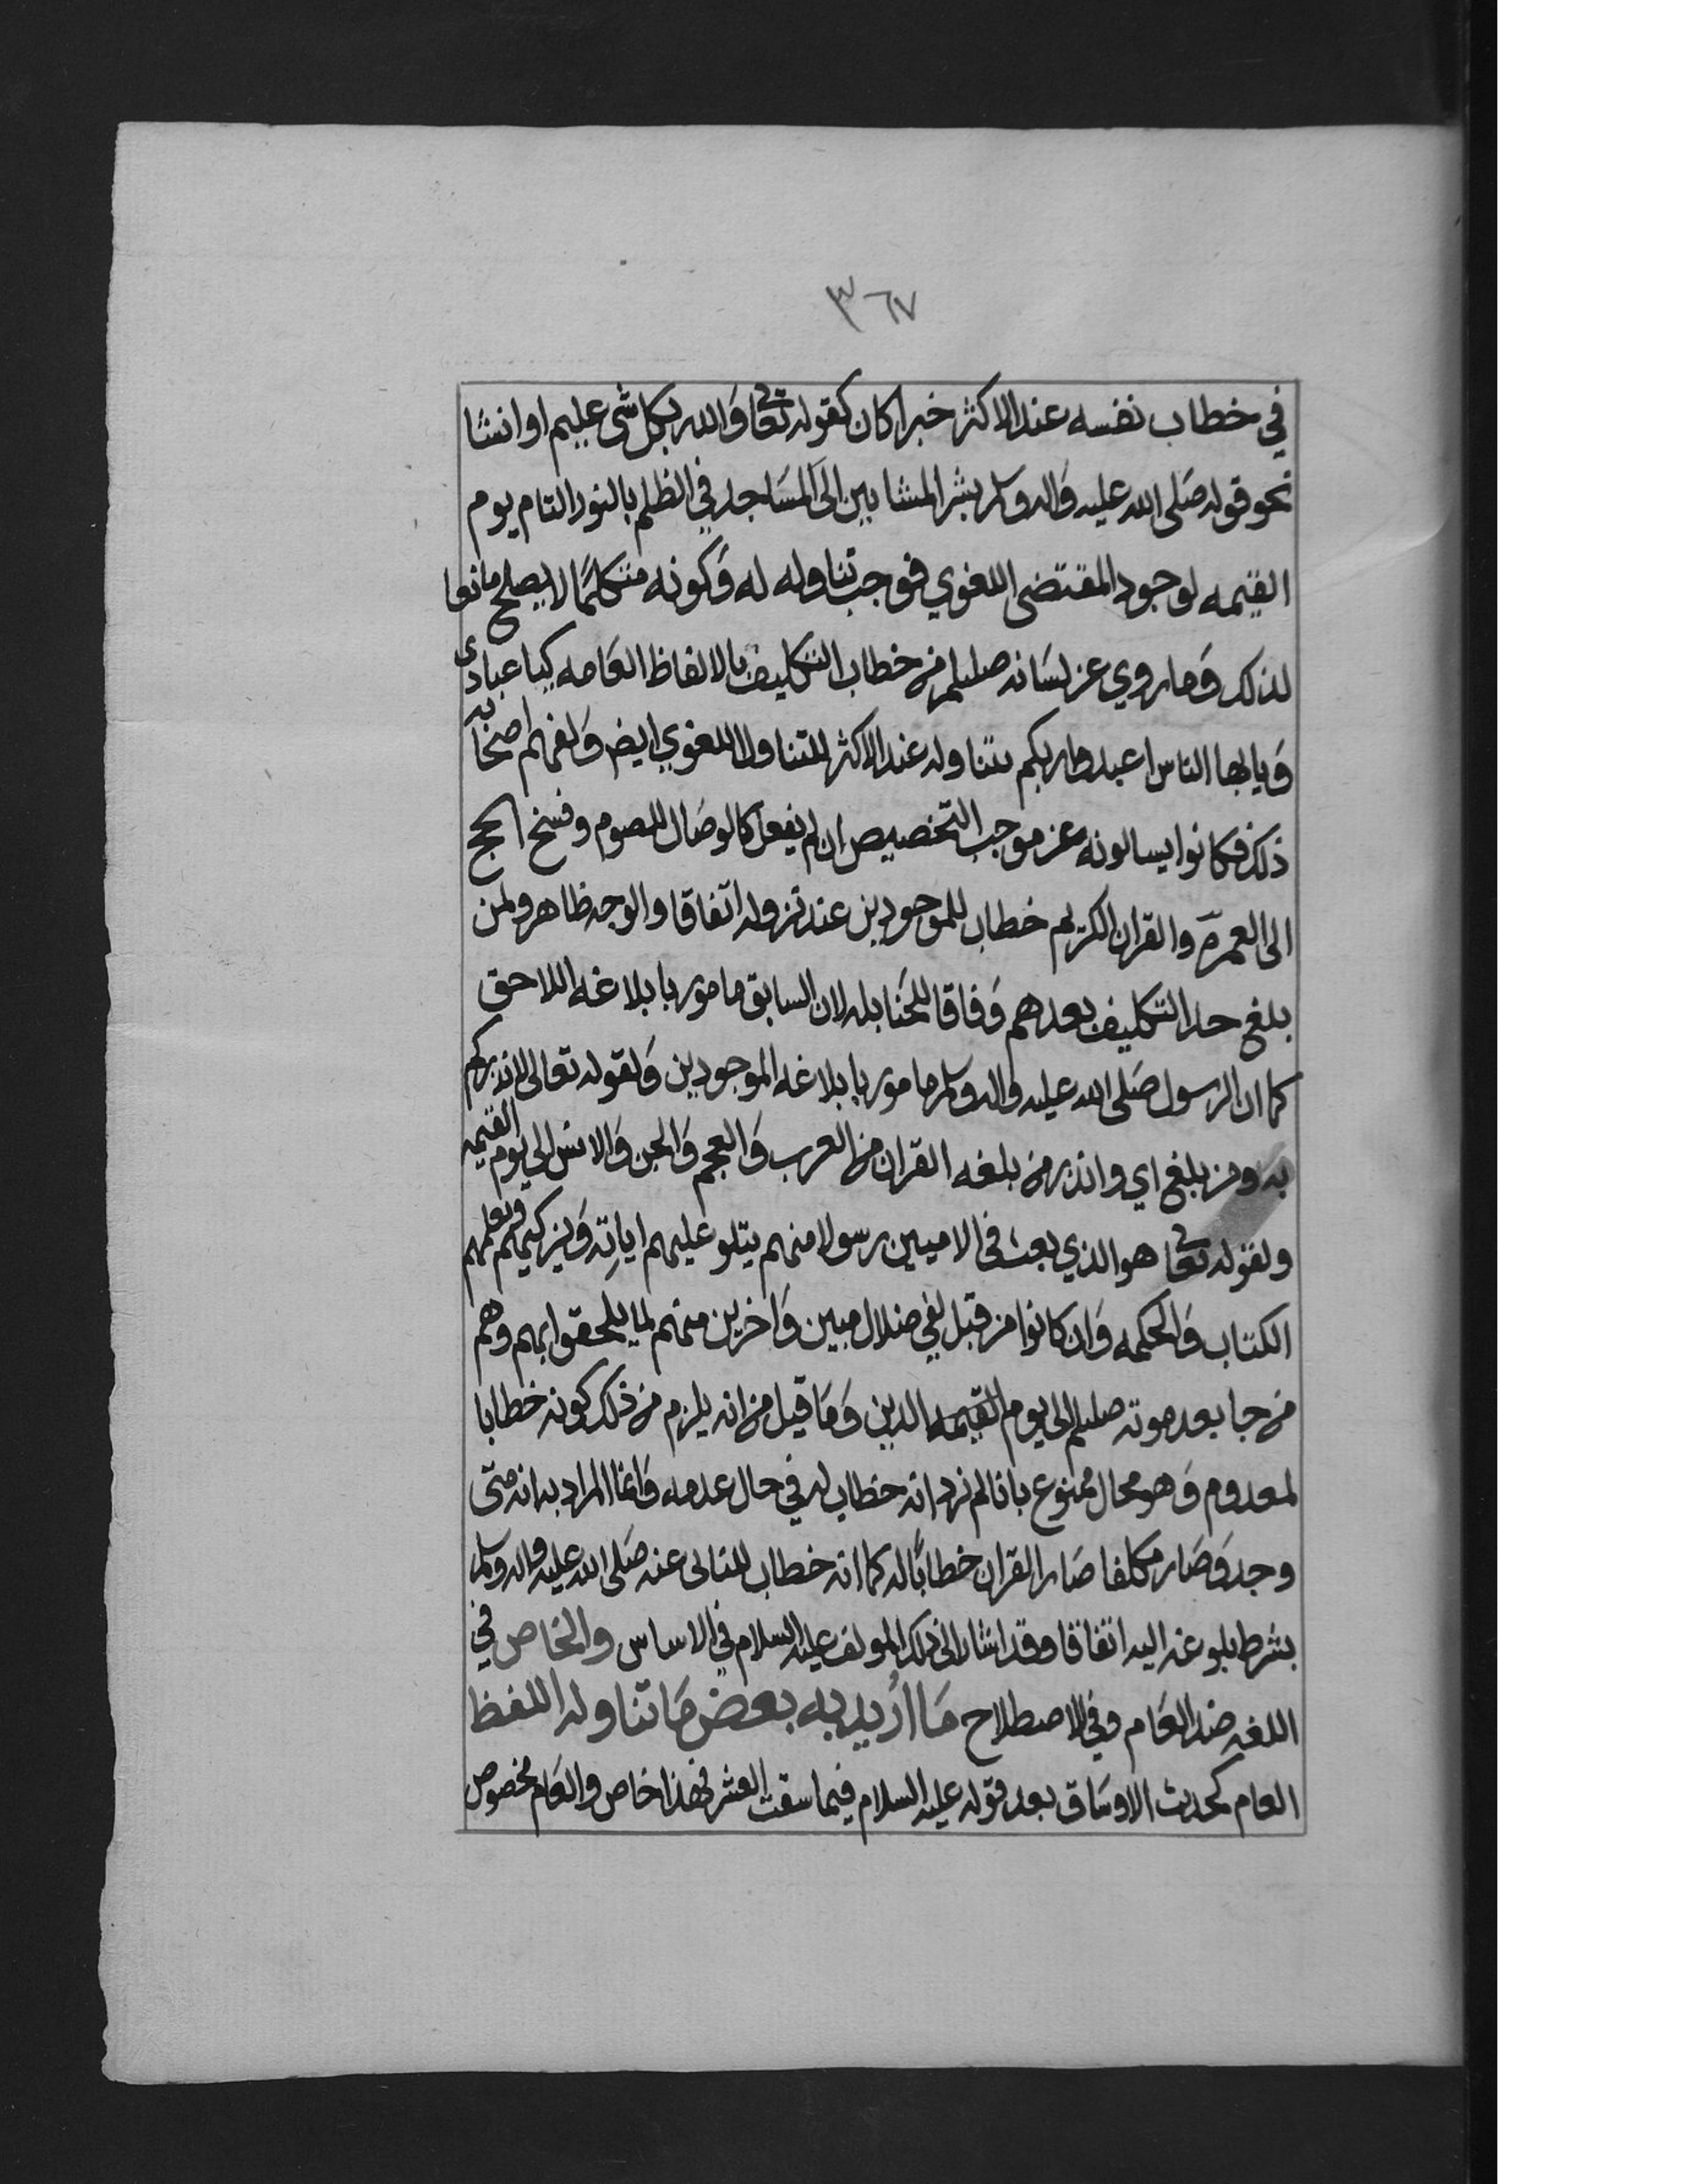 ٣٦٧
في خطاب نفسه عند الاكثر خبرا كان كقوله تعا وَالله بكل شى عليم او انشا
نحو قوله صَلى الله عليه وَاله وسلم بشر المشايين الى المسَاجد في الظلم بالنور التام يوم
القيمه لوجود المقتضى اللغوي فوجب تناوله له وَكونه متكلمًا لا يصلح مانعا
لذلك وَما روي عن لسَانه صللم من خطاب التكليف بالالفاظ العَامه كيا عبادى
وَيا ايها الناس اعبدوا ربكم يتناوله عند الاكثر للتناول اللغوي ايض وَلفهم اصحابه
ذلك فكانوا يسالونه عن موجب التخصيص ان لم يفعل كالوصَال للصوم وفسخ الحج
الى العمرة والقران الكريم خطاب للموجودين عند نزوله اتفاقا والوجه ظاهر ولمن
بلغ حد التكليف بعدهم وَفاقا للحَنابله لان السابق مامور بابلاغه اللاحق
كما ان الرسول صَلى الله عليه واله وسلم مامور بابلاغه الموجودين وَلقوله تعالى لانذركم
به ومن بلغ اي وانذر من بلغه القران من العرب وَالعجم وَالجن وَالانس الى يوم القيمه
ولقوله تعا هو الذي بعث في الاميين رسولا منهم يتلو عليهم اياتِه وَيزكيهم ويعلمهم
الكتاب وَالحكمه وَان كانوا من قبل لفي ضلال مبين وَاخرين منهم لما يلحقوا بهم وهم
من جا بعد موته صللم الى يوم القيمه الدين وَمَا قيل من انه يلزم من ذلك كونه خطابا
لمعدوم وَهو محال ممنوع بانا لم نرد انه خطاب له في حال عدمه وَانما المراد به انه متى
وجد وَصَار مكلفا صَار القران خطابًا له كما انه خطاب للنائى عنه صَلى الله عليه واله وسلم
بشرط بلوغه اليه اتفاقا وقد اشار الى ذلك المولف عليه السلام في الاساس والخاص في
اللغه ضد العَام وفي الاصطلاح مَا اُريد به بعض مَا تناوله اللفظ
العام كحديث الاوسَاق بعد قوله عليه السلام فيما سقت العشر فهذا خاص والعَام مخصوص